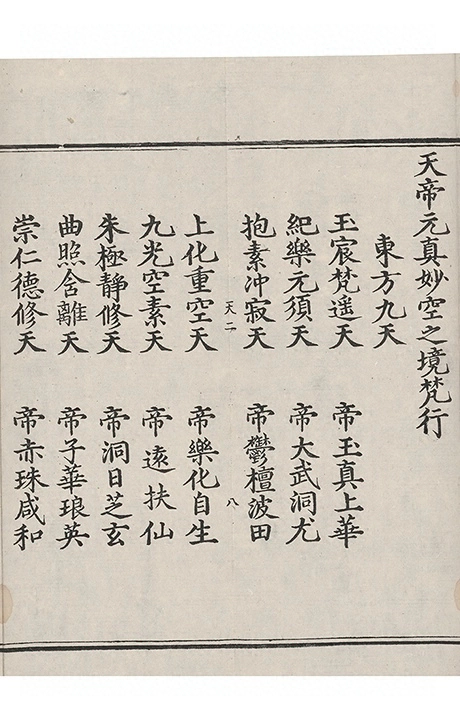 天帝元真妙空之境梵行
東方九天
玉宸梵遥天　帝玉真上華
紀樂元須天　帝大武洞尤
抱素冲寂天　帝鬱檀波田
天二　八
上化重空天　帝樂化自生
九光空素天　帝遠扶仙
朱極靜修天　帝洞日芝玄
曲照舍離天　帝子華琅英
崇仁德修天　帝赤珠咸和